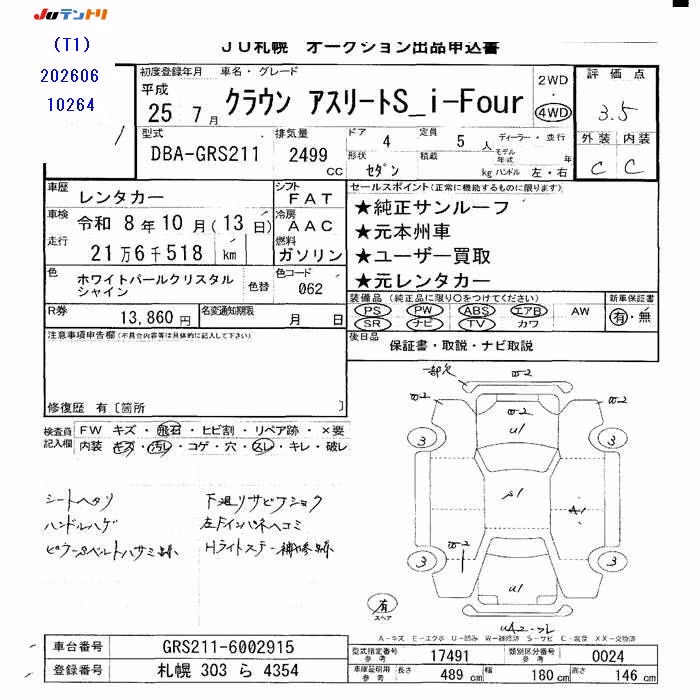 JUテントリ
(T1)
202606
10264
JU札幌 オークション出品申込書
初度登録年月 車名・グレード
平成
25 7月
クラウン アスリートS_i-Four
2WD
・
4WD
評価点
3.5
外装 内装
C C
型式
DBA-GRS211
排気量
2499
CC
ドア 4
定員 5人
ディーラー・並行
形状 セダン
積載 kg
モデル年式 年
ハンドル 左・右
車歴 レンタカー
シフト FAT
車検 令和 8年10月(13日)
冷房 AAC
走行 21万6千518 km
燃料 ガソリン
色 ホワイトパールクリスタル
シャイン
色替
色コード
062
R券 13,860円
名変通知期限 月 日
セールスポイント(正常に機能するものに限ります)
★純正サンルーフ
★元本州車
★ユーザー買取
★元レンタカー
装備品(純正品に限り○をつけてください)
新車保証書
PS PW ABS エアB AW
SR ナビ TV カワ
有・無
後日品
保証書・取説・ナビ取説
注意事項申告欄(不具合内容等は具体的に記入して下さい)
修復歴 有〔箇所 〕
検査員
記入欄
FW キズ・飛石・ヒビ割・リペア跡・×要
内装 キズ・汚レ・コゲ・穴・スレ・キレ・破レ
シートヘタリ
ハンドルハゲ
ピラーSベルトハサミ跡
下廻リサビフショク
左Fインパネヘコミ
Hライトステー補修跡
一部欠
W-2
W-2
W-2
W-2
U1
3
3
A1
W-2
3
3
U1
有
スペア
A-キズ E-エクボ U-凹み W-補修跡 S-サビ C-腐食 XX-交換済
車台番号 GRS211-6002915
登録番号 札幌 303 ら 4354
型式指定番号
参考
17491
類別区分番号
参考
0024
車庫証明用
参考
長さ 489 cm
幅 180 cm
高さ 146 cm